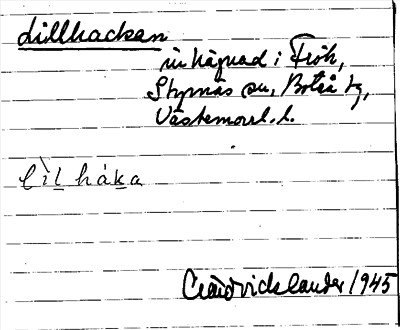 Lillhackan
inhägnad i Frök,
Styrnäs sn, Boteå tg,
Västernorrl. l.
l ì l h á k a
Davidvidslander 1945